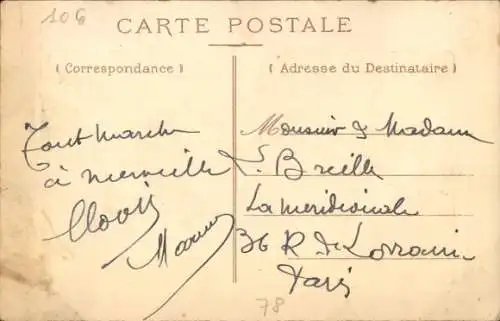 106
CARTE POSTALE
( Correspondance )
( Adresse du Destinataire )
Tout marche
à merveille
Clovis
Monsieur & Madame
L. Breille
La Méridionale
36 R de Lorraine
Paris
78